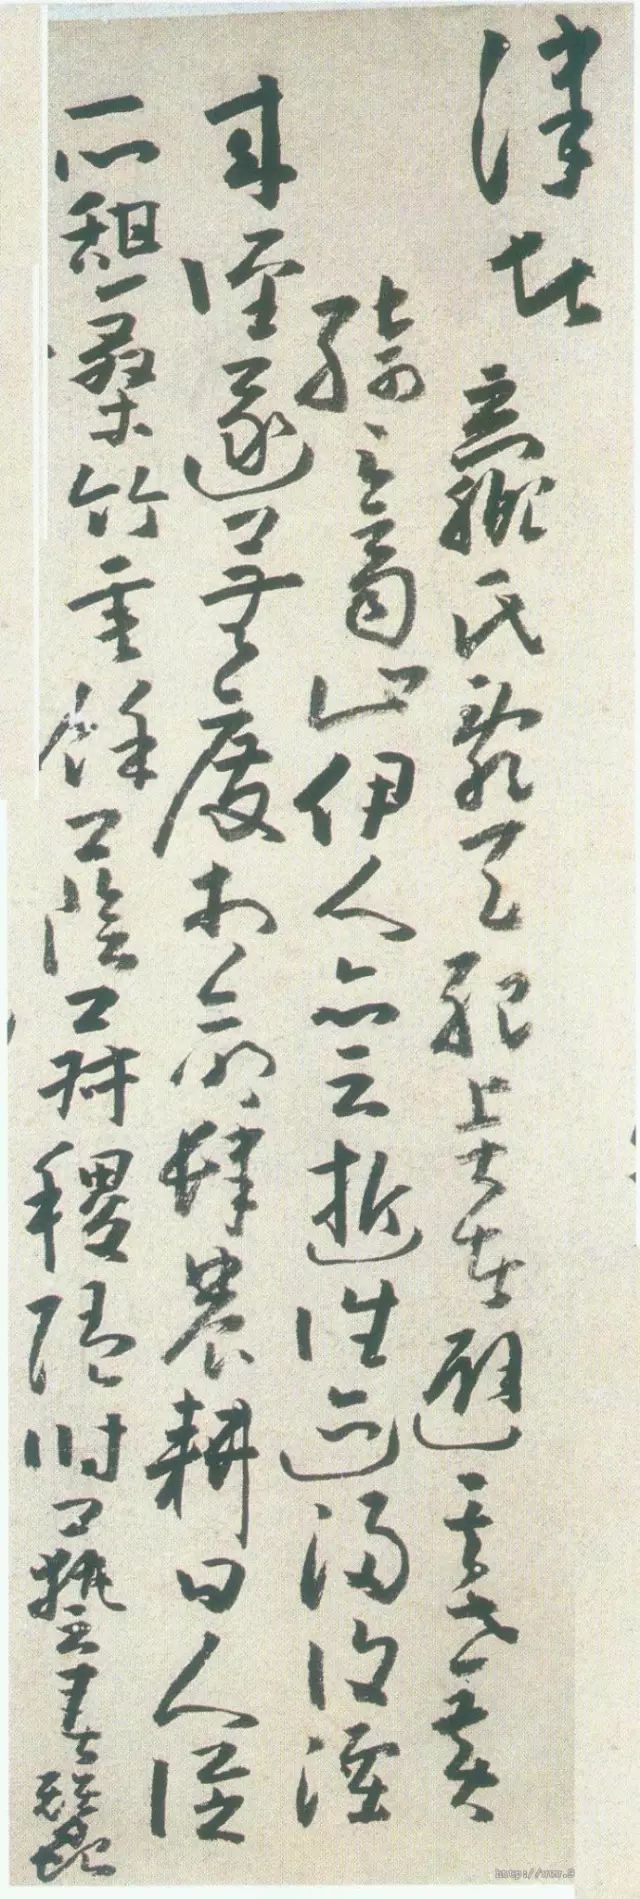 津者
嬴氏亂天紀賢者避其世黃
綺之商山伊人亦云逝往迹浸復湮
來徑遂蕪廢相命肆農耕日入從
所憩桑竹垂餘蔭菽稷隨時藝春蠶
http://www.9